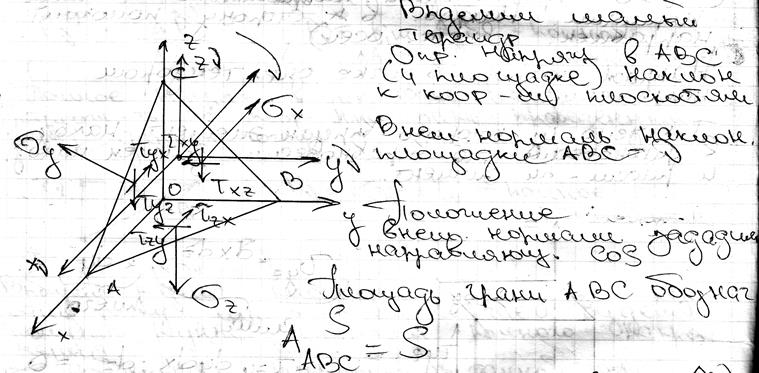 Выделим малый
тетраэдр
Опр. напряж в ABC
(4 площадке) наклон
к коор-ым плоскостям
Внеш. нормаль наклон.
площадки ABC – ν
Положение
внеш. нормали зададим
направляющ. cos
Площадь грани ABC обознач
S
A_ABC = S
z
C
zν
σx
σy
τyx
τxy
yν
τxz
B
O
τyz
τzx
y
τzy
xν
A
σz
x